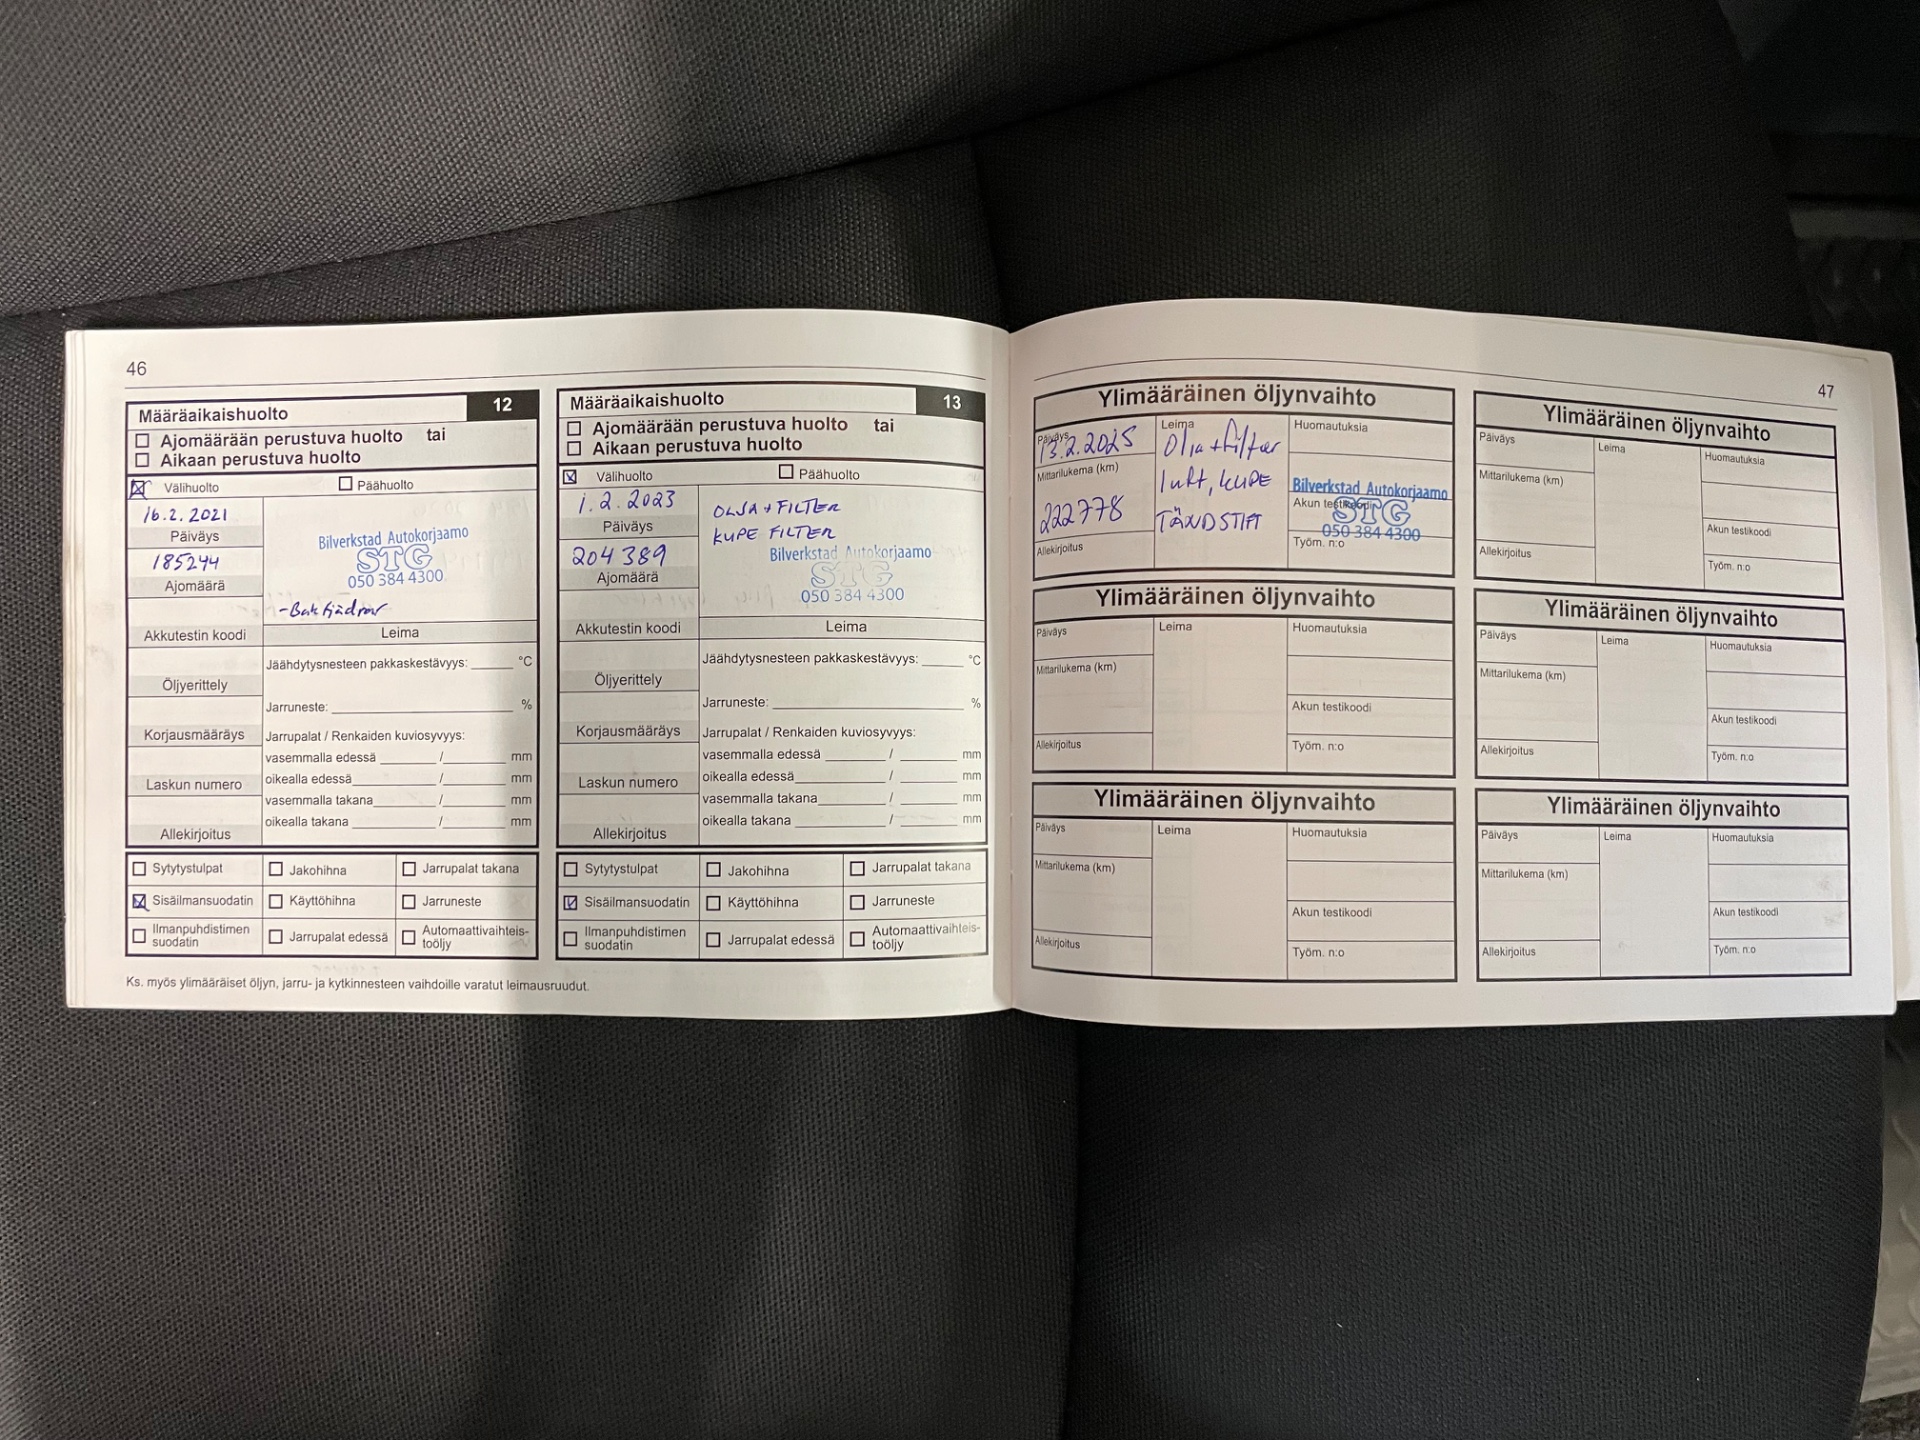 46
Määräaikaishuolto 12
Ajomäärään perustuva huolto tai
Aikaan perustuva huolto
Välihuolto Päähuolto
16.2.2021
Päiväys
185244
Ajomäärä
Bilverkstad Autokorjaamo
STG
050 384 4300
-Bakfjädrar
Akkutestin koodi
Leima
Öljyerittely
Jäähdytysnesteen pakkaskestävyys: ______ °C
Jarruneste: ______ %
Korjausmääräys
Jarrupalat / Renkaiden kuviosyvyys:
vasemmalla edessä ______ / ______ mm
Laskun numero
oikealla edessä ______ / ______ mm
vasemmalla takana ______ / ______ mm
oikealla takana ______ / ______ mm
Allekirjoitus
Sytytystulpat Jakohihna Jarrupalat takana
Sisäilmansuodatin Käyttöhihna Jarruneste
Ilmanpuhdistimen suodatin Jarrupalat edessä Automaattivaihteis-
toöljy
Ks. myös ylimääräiset öljyn, jarru- ja kytkinnesteen vaihdoille varatut leimausruudut.
Määräaikaishuolto 13
Ajomäärään perustuva huolto tai
Aikaan perustuva huolto
Välihuolto Päähuolto
1.2.2023
Päiväys
204389
Ajomäärä
OLJA + FILTER
KUPE FILTER
Bilverkstad Autokorjaamo
STG
050 384 4300
Akkutestin koodi
Leima
Öljyerittely
Jäähdytysnesteen pakkaskestävyys: ______ °C
Jarruneste: ______ %
Korjausmääräys
Jarrupalat / Renkaiden kuviosyvyys:
vasemmalla edessä ______ / ______ mm
Laskun numero
oikealla edessä ______ / ______ mm
vasemmalla takana ______ / ______ mm
oikealla takana ______ / ______ mm
Allekirjoitus
Sytytystulpat Jakohihna Jarrupalat takana
Sisäilmansuodatin Käyttöhihna Jarruneste
Ilmanpuhdistimen suodatin Jarrupalat edessä Automaattivaihteis-
toöljy
47
Ylimääräinen öljynvaihto
Päiväys
13.2.2025
Mittarilukema (km)
222778
Allekirjoitus
Leima
Olja + filter
luft, KUPE
TÄNDSTIFT
Huomautuksia
Bilverkstad Autokorjaamo
Akun testikoodi
STG
050 384 4300
Työm. n:o
Ylimääräinen öljynvaihto
Päiväys
Leima
Huomautuksia
Mittarilukema (km)
Akun testikoodi
Allekirjoitus
Työm. n:o
Ylimääräinen öljynvaihto
Päiväys
Leima
Huomautuksia
Mittarilukema (km)
Akun testikoodi
Allekirjoitus
Työm. n:o
Ylimääräinen öljynvaihto
Päiväys
Leima
Huomautuksia
Mittarilukema (km)
Akun testikoodi
Allekirjoitus
Työm. n:o
Ylimääräinen öljynvaihto
Päiväys
Leima
Huomautuksia
Mittarilukema (km)
Akun testikoodi
Allekirjoitus
Työm. n:o
Ylimääräinen öljynvaihto
Päiväys
Leima
Huomautuksia
Mittarilukema (km)
Akun testikoodi
Allekirjoitus
Työm. n:o